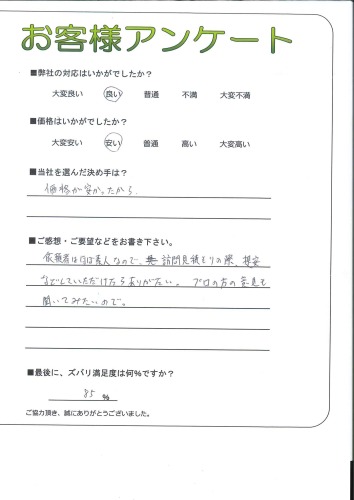 お客様アンケート
■弊社の対応はいかがでしたか?
大変良い 良い 普通 不満 大変不満
■価格はいかがでしたか?
大変安い 安い 普通 高い 大変高い
■当社を選んだ決め手は?
価格が安かったから
■ご感想・ご要望などをお書き下さい。
依頼者は素人なので、訪問見積もりの際、提案
などしていただけたらありがたい。プロの方の意見も
聞いてみたいので。
■最後に、ズバリ満足度は何%ですか?
85 %
ご協力頂き、誠にありがとうございました。